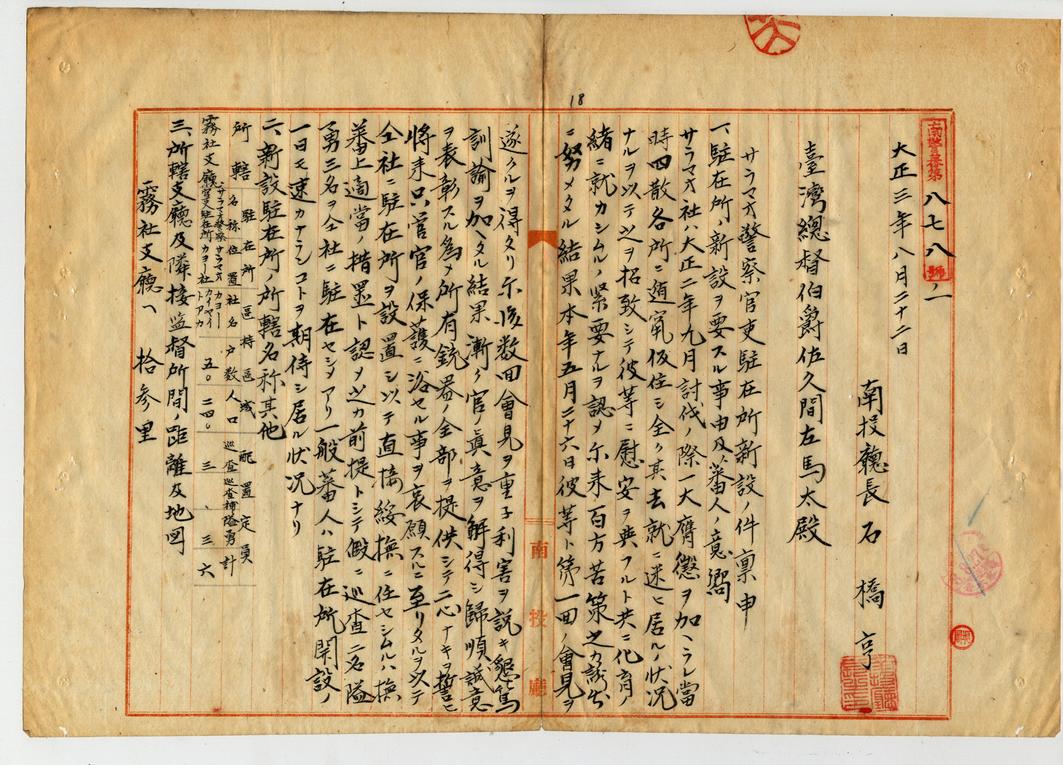 18
南警蕃第八七八號ノ一
大正三年八月二十二日
南投廳長石橋亨
臺灣總督伯爵佐久間左馬太殿
サラマオ警察官吏駐在所新設ノ件稟申
一、駐在所、新設ヲ要スル事由及蕃人ノ意嚮
サラマオ社ハ大正二年九月討伐ノ際一大膺懲ヲ加ヘラレ當
時四散各所ニ遁竄仮住シ全ク其去就ニ迷ヒ居ルノ状况
ナルヲ以テ之ヲ招致シテ彼等ニ慰安ヲ與フルト共ニ化育ノ
緒ニ就カシムルノ緊要ナルヲ認メ尓来百方苦策之カ誘出
ニ努メタル結果本年五月二十六日彼等ト第一回ノ會見ヲ
遂クルヲ得タリ尓後数回會見ヲ重子利害ヲ説キ懇篤
訓諭ヲ加ヘタル結果漸ク官ノ眞意ヲ解得シ歸順誠意
ヲ表彰スル為メ所有銃器ノ全部ヲ提供シテ二心ナキヲ誓ヒ
將来只管官ノ保護ニ浴セル事ヲ哀願スルニ至リタルヲ以テ
仝社ニ駐在所ヲ設置シ以テ直接綏撫ニ任セシムルハ撫
蕃上適當ノ措置ト認メ之カ前提トシテ假ニ巡査二名隘
勇三名ヲ仝社ニ駐在セシメアリ一般蕃人ハ駐在所開設ノ
一日モ速カナランコトヲ期待シ居ル状况ナリ
二、新設駐在所ノ所轄名称其他
所轄 駐在所 區持區域 配置定員
名称 位置 社名 戸数 人口 巡査 巡査補 隘勇 計
霧社支廳 サラマオ警察官吏駐在所 サラマオカヨー社 カヨー カイヤイ トアカ 五〇 二四〇 三 、 三 六
三、所轄支廳及隣接監督所間ノ距離及地図
霧社支廳ヘ 拾参里
南投廳